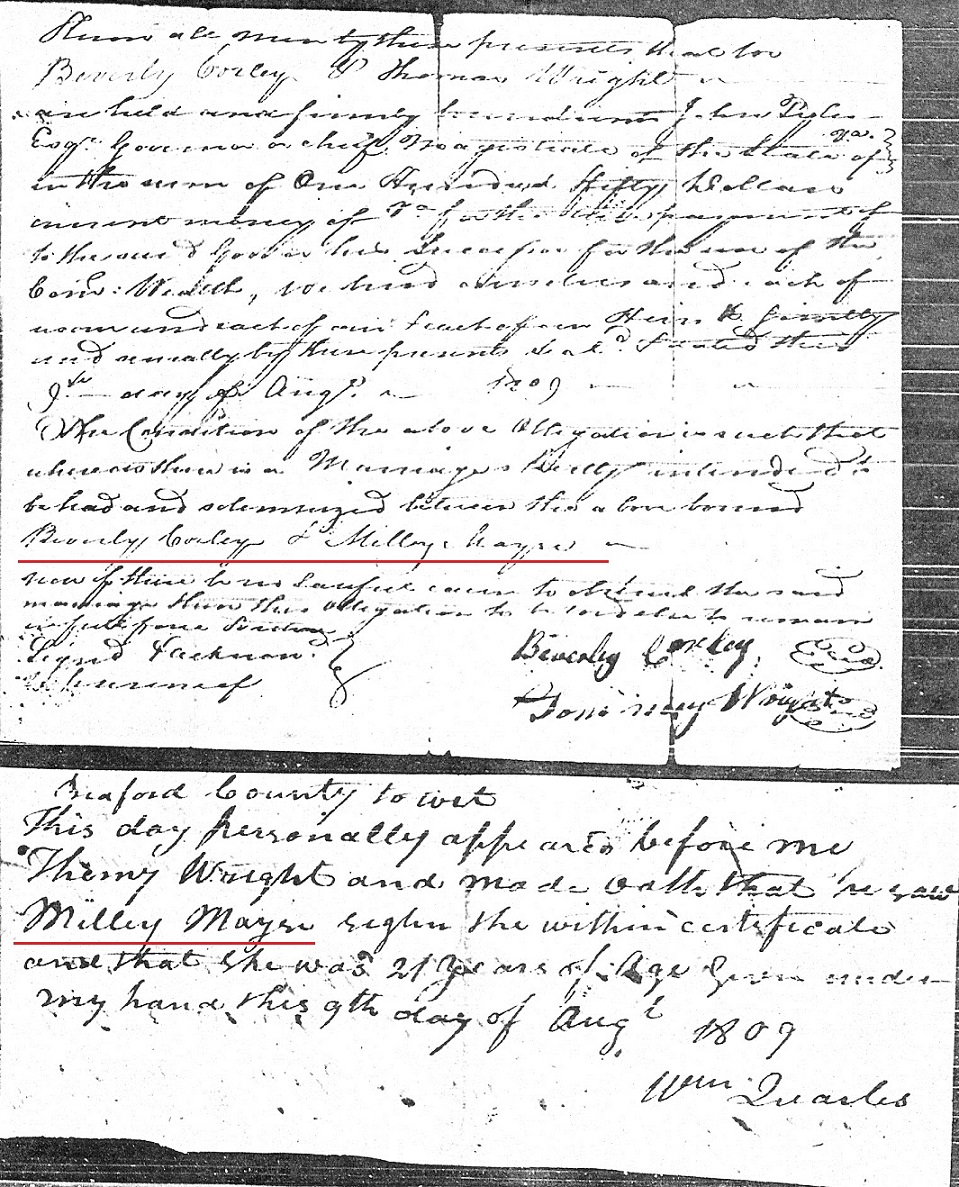 Know all men by these presents that we
Beverly Corley & Thomas Wright
are held and firmly bound unto John Tyler
Esqr. Governor or chief Magistrate of the State of Va.
in the sum of One Hundred & fifty Dollars
current money of Va for the payment of
to the said Governor his Successor for the use of the
Com: Wealth, we bind ourselves and each of
us our and each of our & each of our Heirs & jointly
and severally by these presents Seald. & dated this
9th day of Augt. 1809
The Condition of the above Obligation is such that
whereas there is a Marriage shortly intended to
be had and solemnized between the above bound
Beverly Corley & Milley Mayse
now if there be no lawful cause to obstruct the said
marriage then this obligation to be void else to remain
in full force & virtue
Signd & acknowd.
in presence of
Beverly Corley Seal
Wright Seal
Bedford County to wit
This day personally appeared before me
Themy Wright and made oath that he saw
Milley Mayse sighn the within certificate
and that she was 21 Years of Age Given under
my hand this 9th day of Augt 1809
Wm Quarles